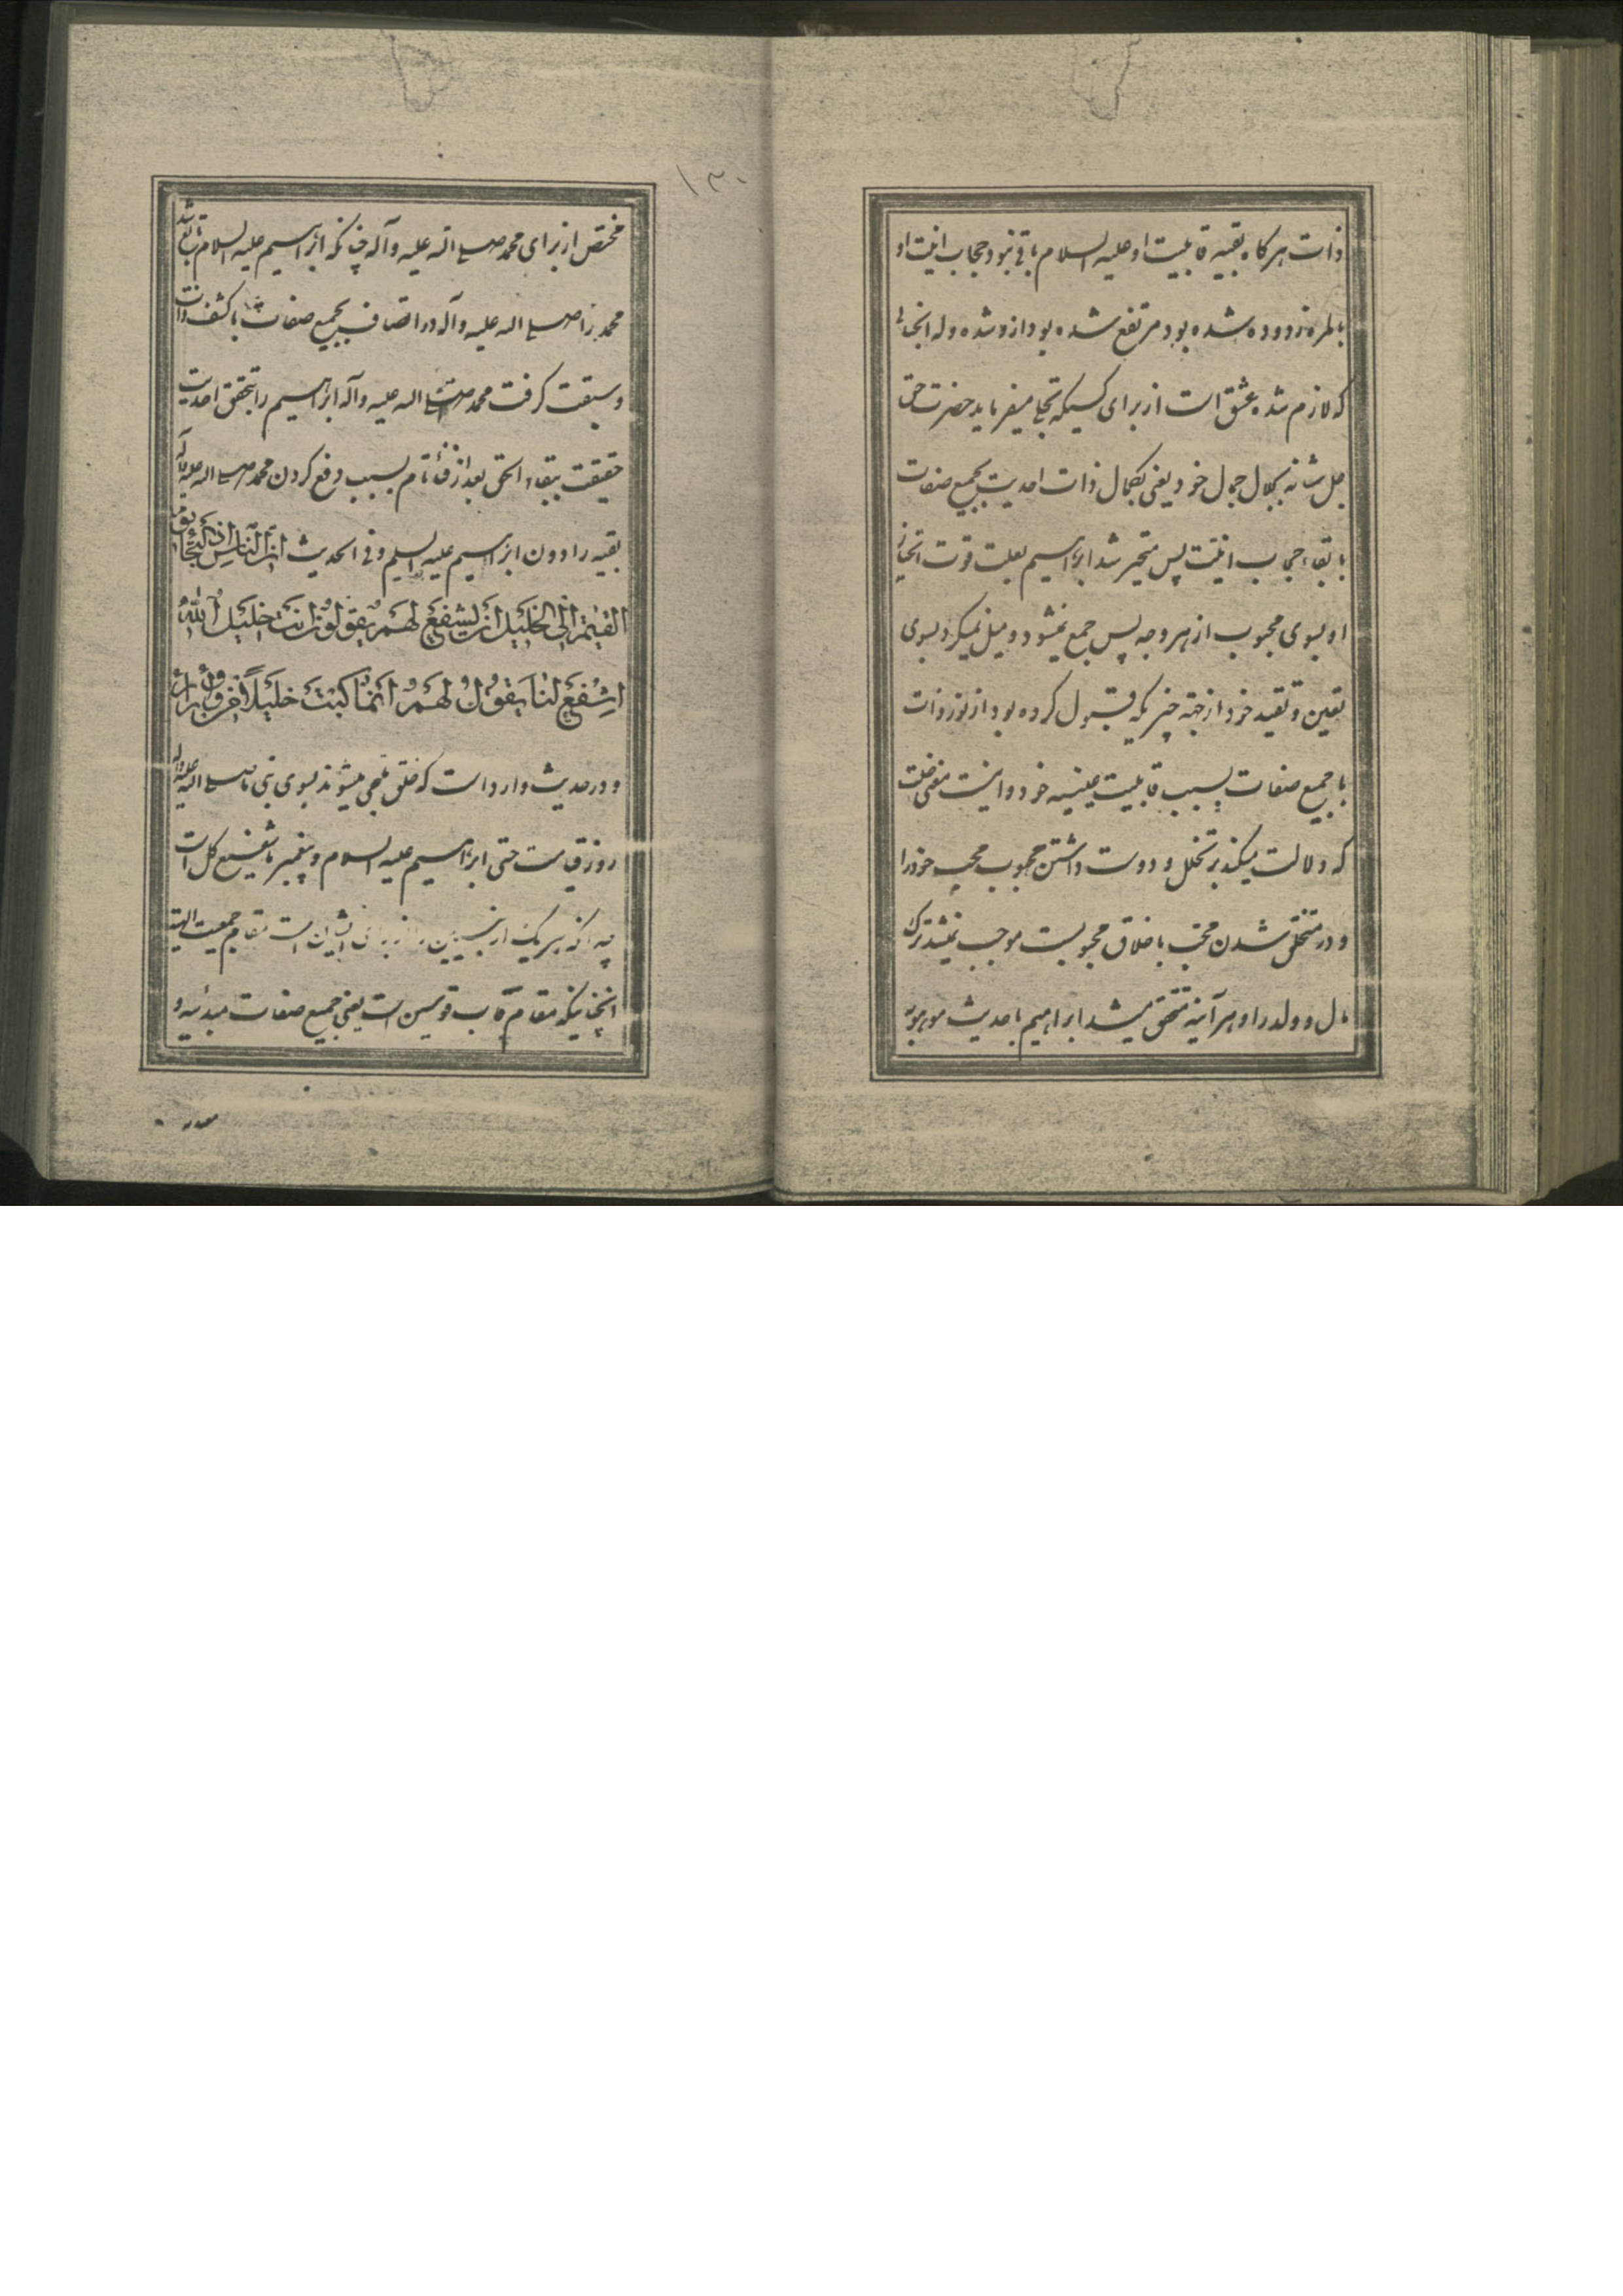 ذات هرکاه بقیه قابلیت او علیه السلام باقی نبود حجاب انیت او
بالمره زدوده شده بود مرتفع شده بود ازو شده وله انجذابی
که لازم شده عشق است از برای کسیکه تجلی میفرماید حضرت حق
جل شانه بکمال جمال خود یعنی بکمال ذات احدیت بجمیع صفات
با بقاء حجاب انیّت پس متحیر شد ابراهیم بعلت قوت انجذاب
او بسوی محبوب از هر وجه پس جمع نمیشود و میل نمیکرد بسوی
تعین و تقید خود از جهة خیریکه قبول کرده بود از نور ذات
با جمیع صفات بسبب قابلیت عینیه خود و اینست معنی خلت
که دلالت میکند بر تخلل و دوست داشتن محبوب محب خود را
و در متخلق شدن محب باخلاق محبوبست موجب نمیشد ترک
مال و ولد را و هر آینه متحقق میشد ابراهیم باحدیث موهوبه
۱۳۰
مختص از برای محمد صلی الله علیه وآله چنانکه ابراهیم علیه السلام تابع شد
محمد را صلی الله علیه وآله در اتصاف بجمیع صفات با کشف ذات
و سبقت کرفت محمد صلی الله علیه وآله ابراهیم را بتحقق احدیت
حقیقت ببقاء الحق بعد از فناء تام بسبب دفع کردن محمد صلی الله علیه وآله
بقیه را دون ابراهیم علیه السلم و فی الحدیث اَنَّ النّاسَ اِذا اِلْتَجَأُ یوم
القیٰمة اِلَی الخَلیلِ اَنْ یَشْفَعَ لَهُمْ یَقُولُونَ اَنْتَ خَلیلُ اللّٰهِ
اِشْفَعْ لَنا یَقُولُ لَهُمْ اَنَّما کُنْتُ خَلیلاً مِنْ وَرٰاءَ وَرٰاءَ
و در حدیث وارد است که خلق ملتجی میشوند بسوی نبی ما صلی الله علیه وآله
روز قیامت حتی ابراهیم علیه السلام و پیغمبر ما شفیع کل است
چه انکه هر یک از نبیین را از برای ایشان است مقام جمعیت الهیة
انچنانیکه مقام قاب قوسین است یعنی جمیع صفات مبدئیه و